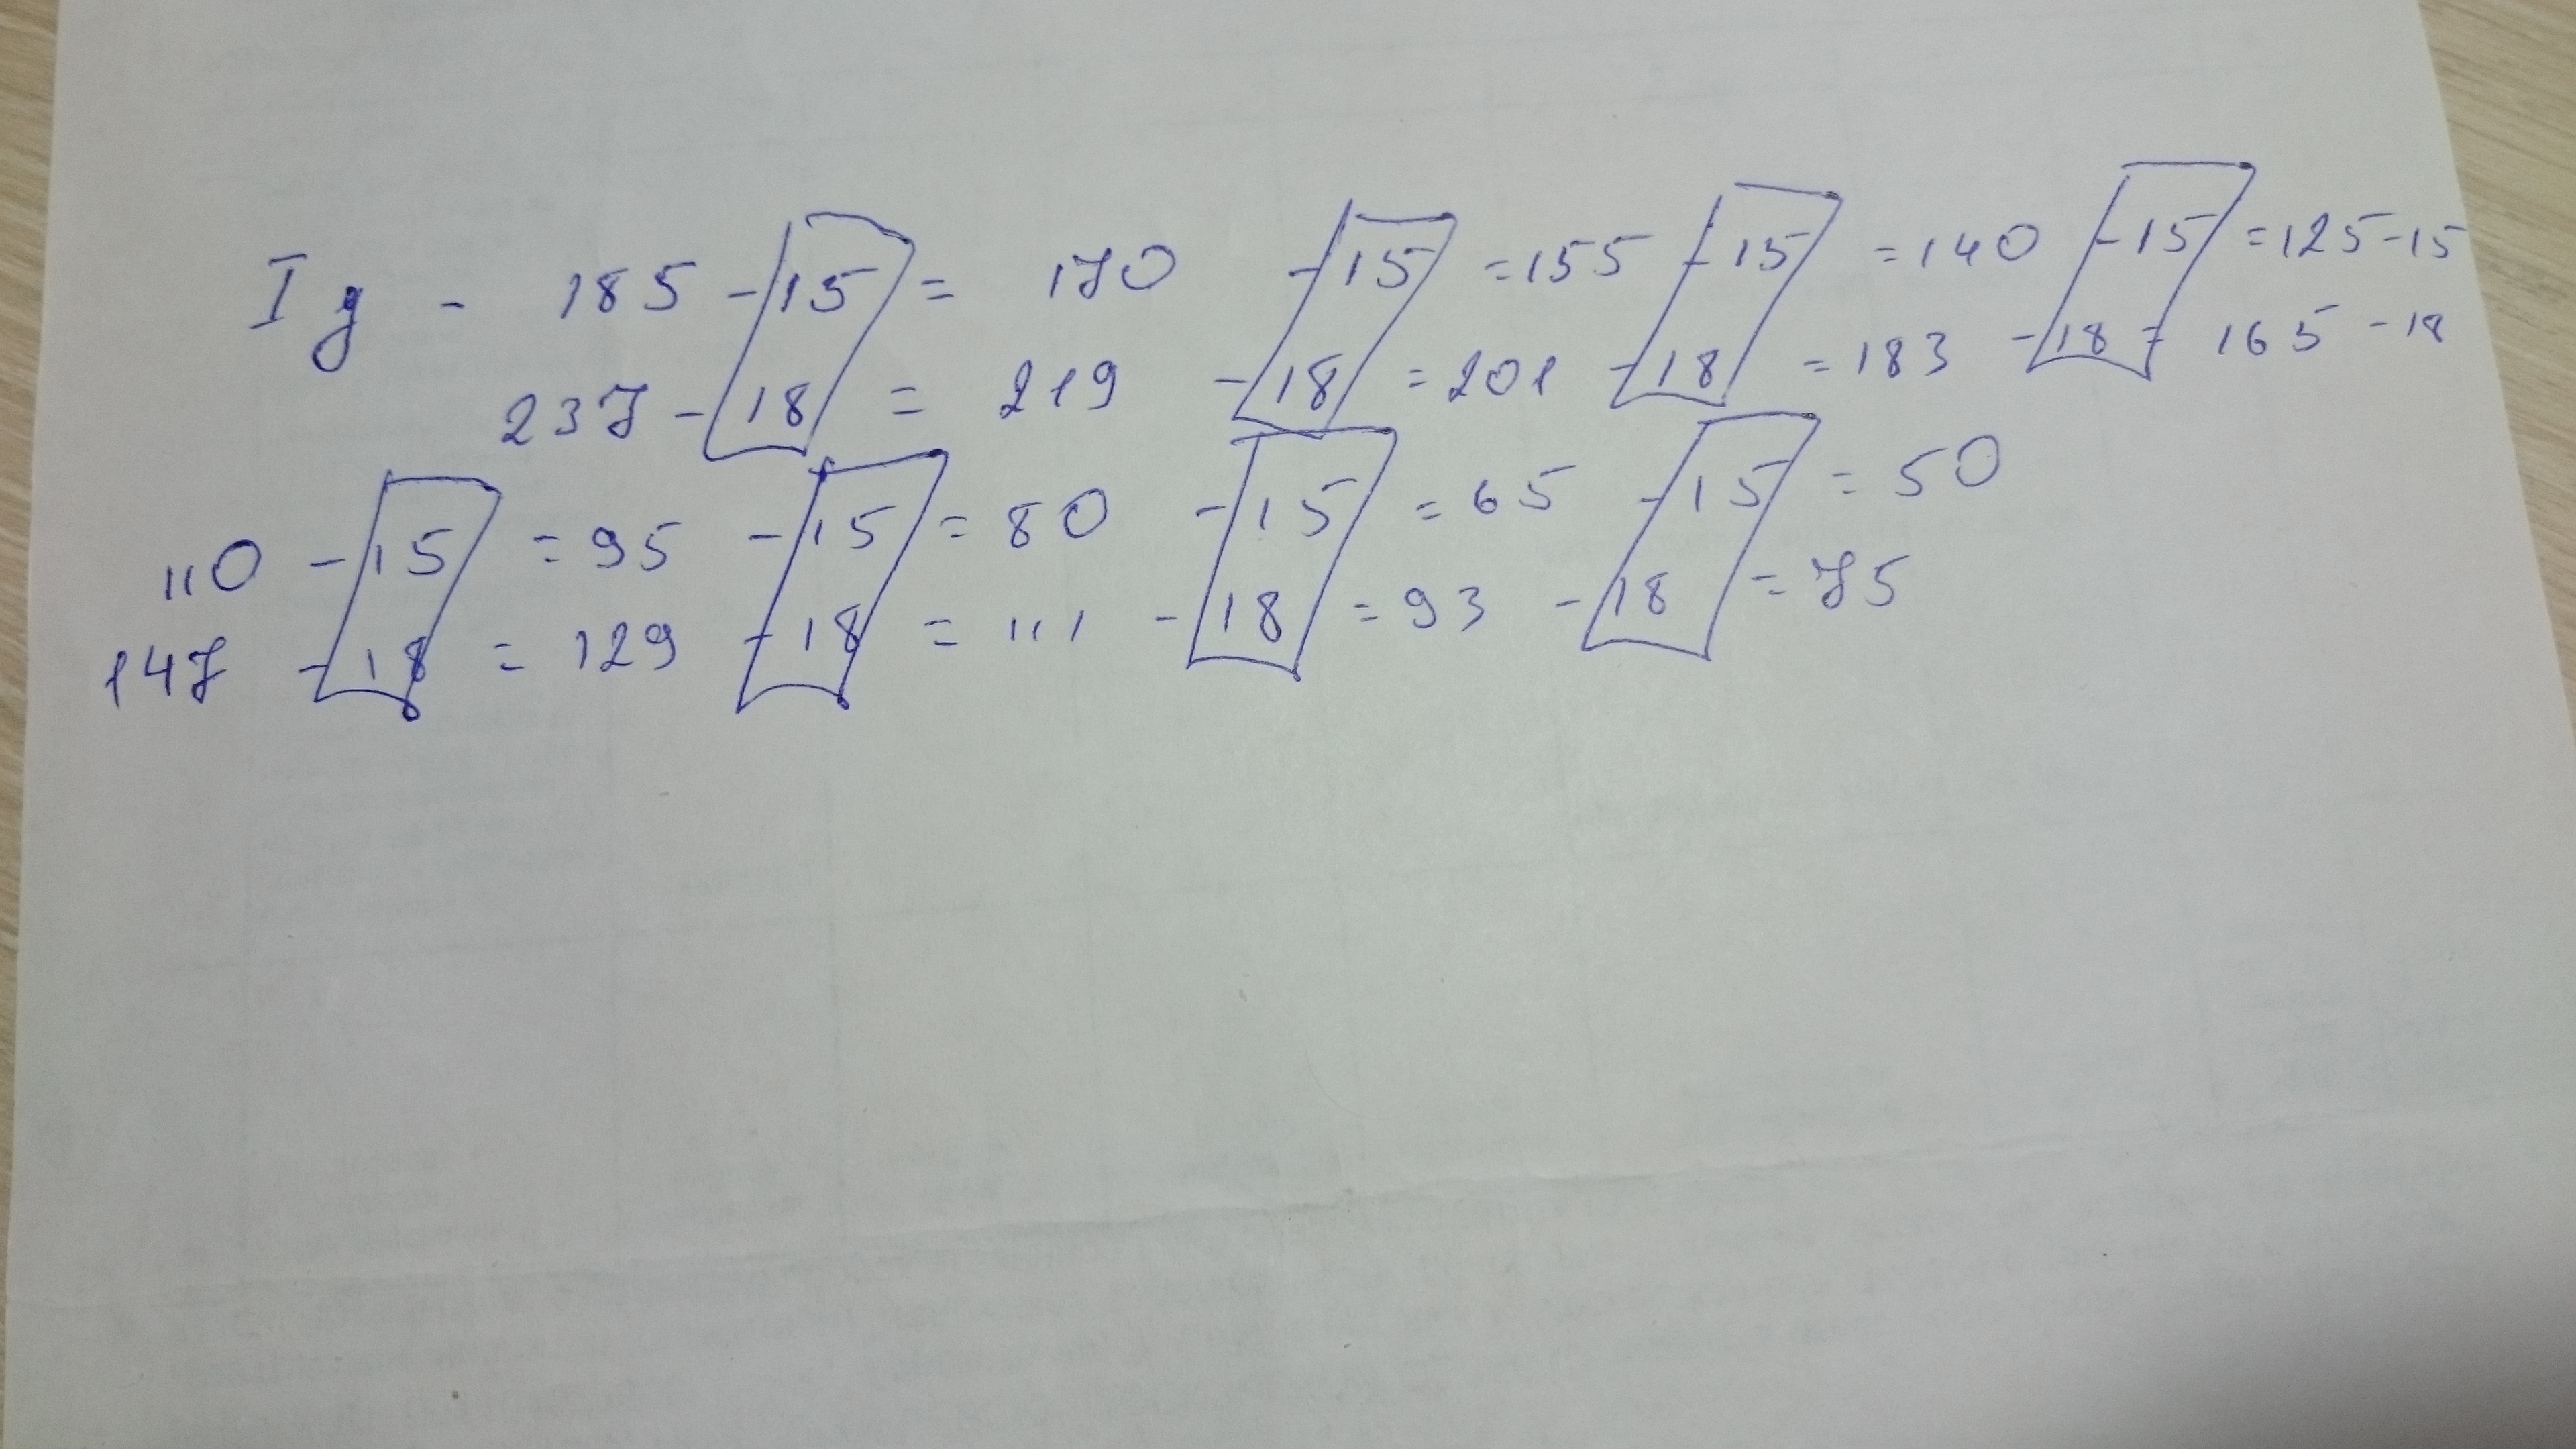 I y - 185 - 15 = 170 - 15 = 155 - 15 = 140 - 15 = 125 - 15
237 - 18 = 219 - 18 = 201 - 18 = 183 - 18 = 165 - 18
110 - 15 = 95 - 15 = 80 - 15 = 65 - 15 = 50
147 - 18 = 129 - 18 = 111 - 18 = 93 - 18 = 75